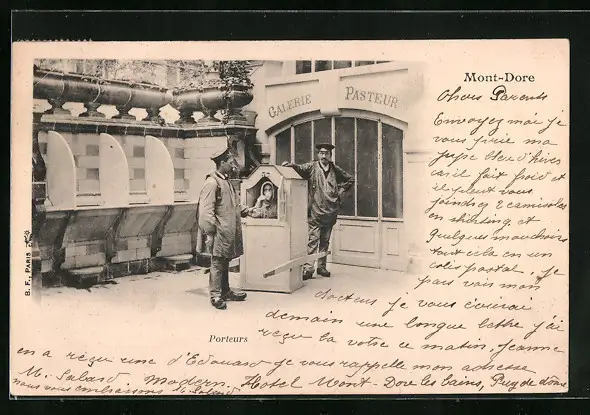 Mont-Dore
GALERIE PASTEUR
Chers Parents
Envoyez moi je
vous prie ma
jupe bleu d'hiver
car il fait froid et
il pleut vous
joindrez 2 camisoles
en shirting et
quelques mouchoirs
tout cela en un
colis postal, je
vais voir mon
docteur je vous écrirai
demain une longue lettre j'ai
reçu la votre ce matin, Jeanne
en a reçu une d'Edouard je vous rappelle mon adresse
M. Salard Modern Hotel Mont-Dore les bains, Puy de dôme
nous vous embrassons Salard
Porteurs
B. F., PARIS